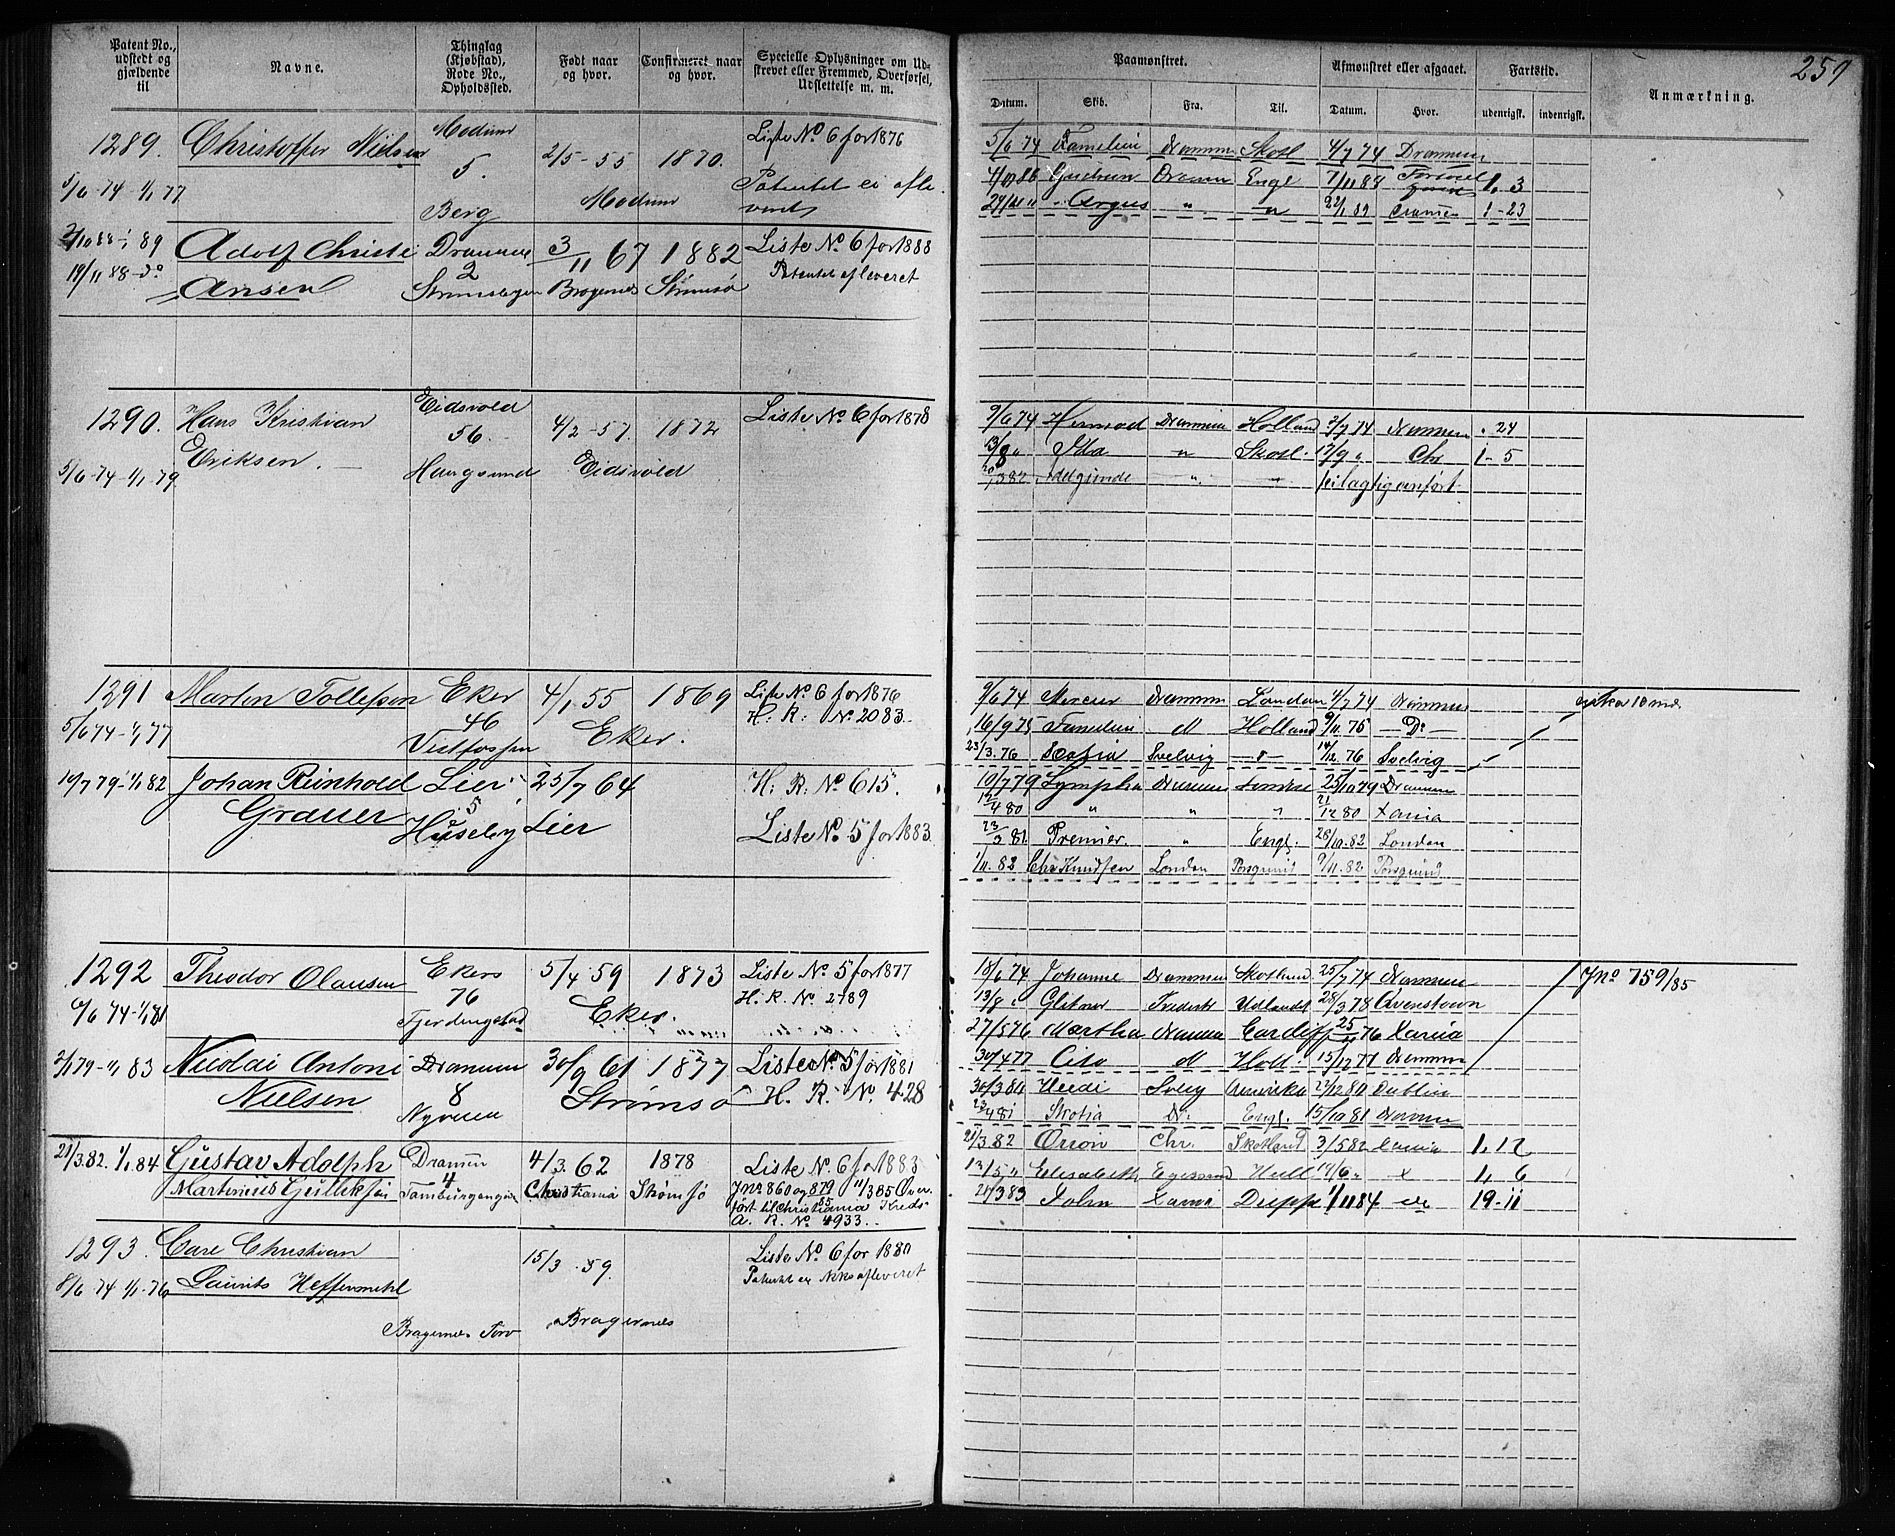 259
Patent No., udstedt og gjældende til
Navne.
Thinglag (Kjøbstad), Rode No., Opholdssted.
Født naar og hvor.
Confirmeret naar og hvor.
Specielle Oplysninger om Udstrevet eller Fremmed, Overførsel, Udslettelse m. m.
Paamønstret.
Afmønstret eller afgaaet.
Fartstid.
Anmærkning.
Datum. Skib. Fra. Til. Datum. Hvor. udenrigsk. indenrigsk.
1289. Christoffer Nielsen Modum 5. 2/5-55 1870. Liste No 6 for 1876
5/6-74-1/1 77 Berg Modum Patentet ei afleveret
5/6 74 Familien Drammen Skotl 4/7 74 Drammen
Gudrun Drammen Engl 7/11 88 1, 3
Argus " " 22/1 89 Drammen 1-23
89 Adolf Christi Drammen 3/11 67 1882 Liste No. 6 for 1888
19/11 88-do Ansen 2 Bragernes Strømsø Patentet afleveret
1290. Hans Kristian Eidsvold 4/2-57 1872 Liste No 6 for 1878
Eriksen. 56.
5/6-74-1/1-79 Haugsund Eidsvold
9/6 74 Hermod Drammen Holland 2/7 74 Drammen . 24
13/8 " Ida " Skotl. 17/9 " Chr 1-5
Adelgunde " " feilagtig anført
1291 Martin Tollefsen Eker 4/1 55 1869 Liste No. 6 for 1876
46 H. R. No. 2083.
5/6 74-1/1 77 Vestfossen Eker.
9/6 74 Mercur Drammen London 4/7 74 Drammen
16/9 75 Familien Holland 9/11 75 - Do -
23/3. 76 Svelvig 14/12 76 Svelvig
10/7 79-1/1 82 Johan Reinhold Lier 25/7 64 H. R. No 615.
Grauer 5
Huseby Lier Liste No 5 for 1883.
10/7 79 Lympha Drammen 25/10 79 Drammen
12/4 80 " " " 21/12 80 Xania
23/3 81 Premier. " Engl. 28/10. 82 London
1/11. 82 Chr Knudsen London Porsgrund 9/11. 82 Porsgrund
1292 Theodor Olausen Ekers 5/4 59 1873 Liste No. 5 for 1877
76 H. R. No 2789
6/6 74-1/1 81 Eker.
18/6 74 Johanne Drammen Skotland 25/7 74 Drammen
Jno 759/85
13/8 " Glitner 28/3 78 Qvenstown
27/5 76 Martha Drammen Cardiff 25/11 76 Xania
30/4 77 Cito Holl. 15/12 77 Drammen
2/1 79-1/1 83 Nicolai Antoni Drammen 30/9 61 1877 Liste No. 5 for 1881
Nielsen 8 Strømsø H. R. No. 428
30/3 80 Amerika Dublin
23/4 81 Skotia Do Engl. 15/10 81 Drammen
21/3. 82. 1/1. 84 Gustav Adolph Drammen 4/3. 62 1878 Liste No. 6 for 1883
Martinius Gulliksen 4 Christiania Strømsø Jno 860 og 879/85 11/3 85 Over-
ført til Christiania Kreds
A. R. No. 4933..
21/3. 82 Orion Chr. Skotland 3/5 82 Xania 1, 12
13/5 " Elisabeth Egersund Hull 14/6 " x 1, 6
21/3 83 John Xania Dieppe 1/1 84 do 19-11
1293. Carl Christian 15/3. 59. Liste No. 6 for 1880
8/6-74-1/1-76 Laurits Heffermehl Patentet ei afleveret
Bragernes Torv Bragernes